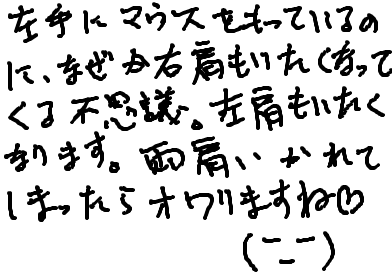 左手にマウスをもっているの
に、なぜか右肩もいたくなって
くる不思議。左肩もいたく
なります。両肩いかれて
しまったらオワりますね♡
(ーー)